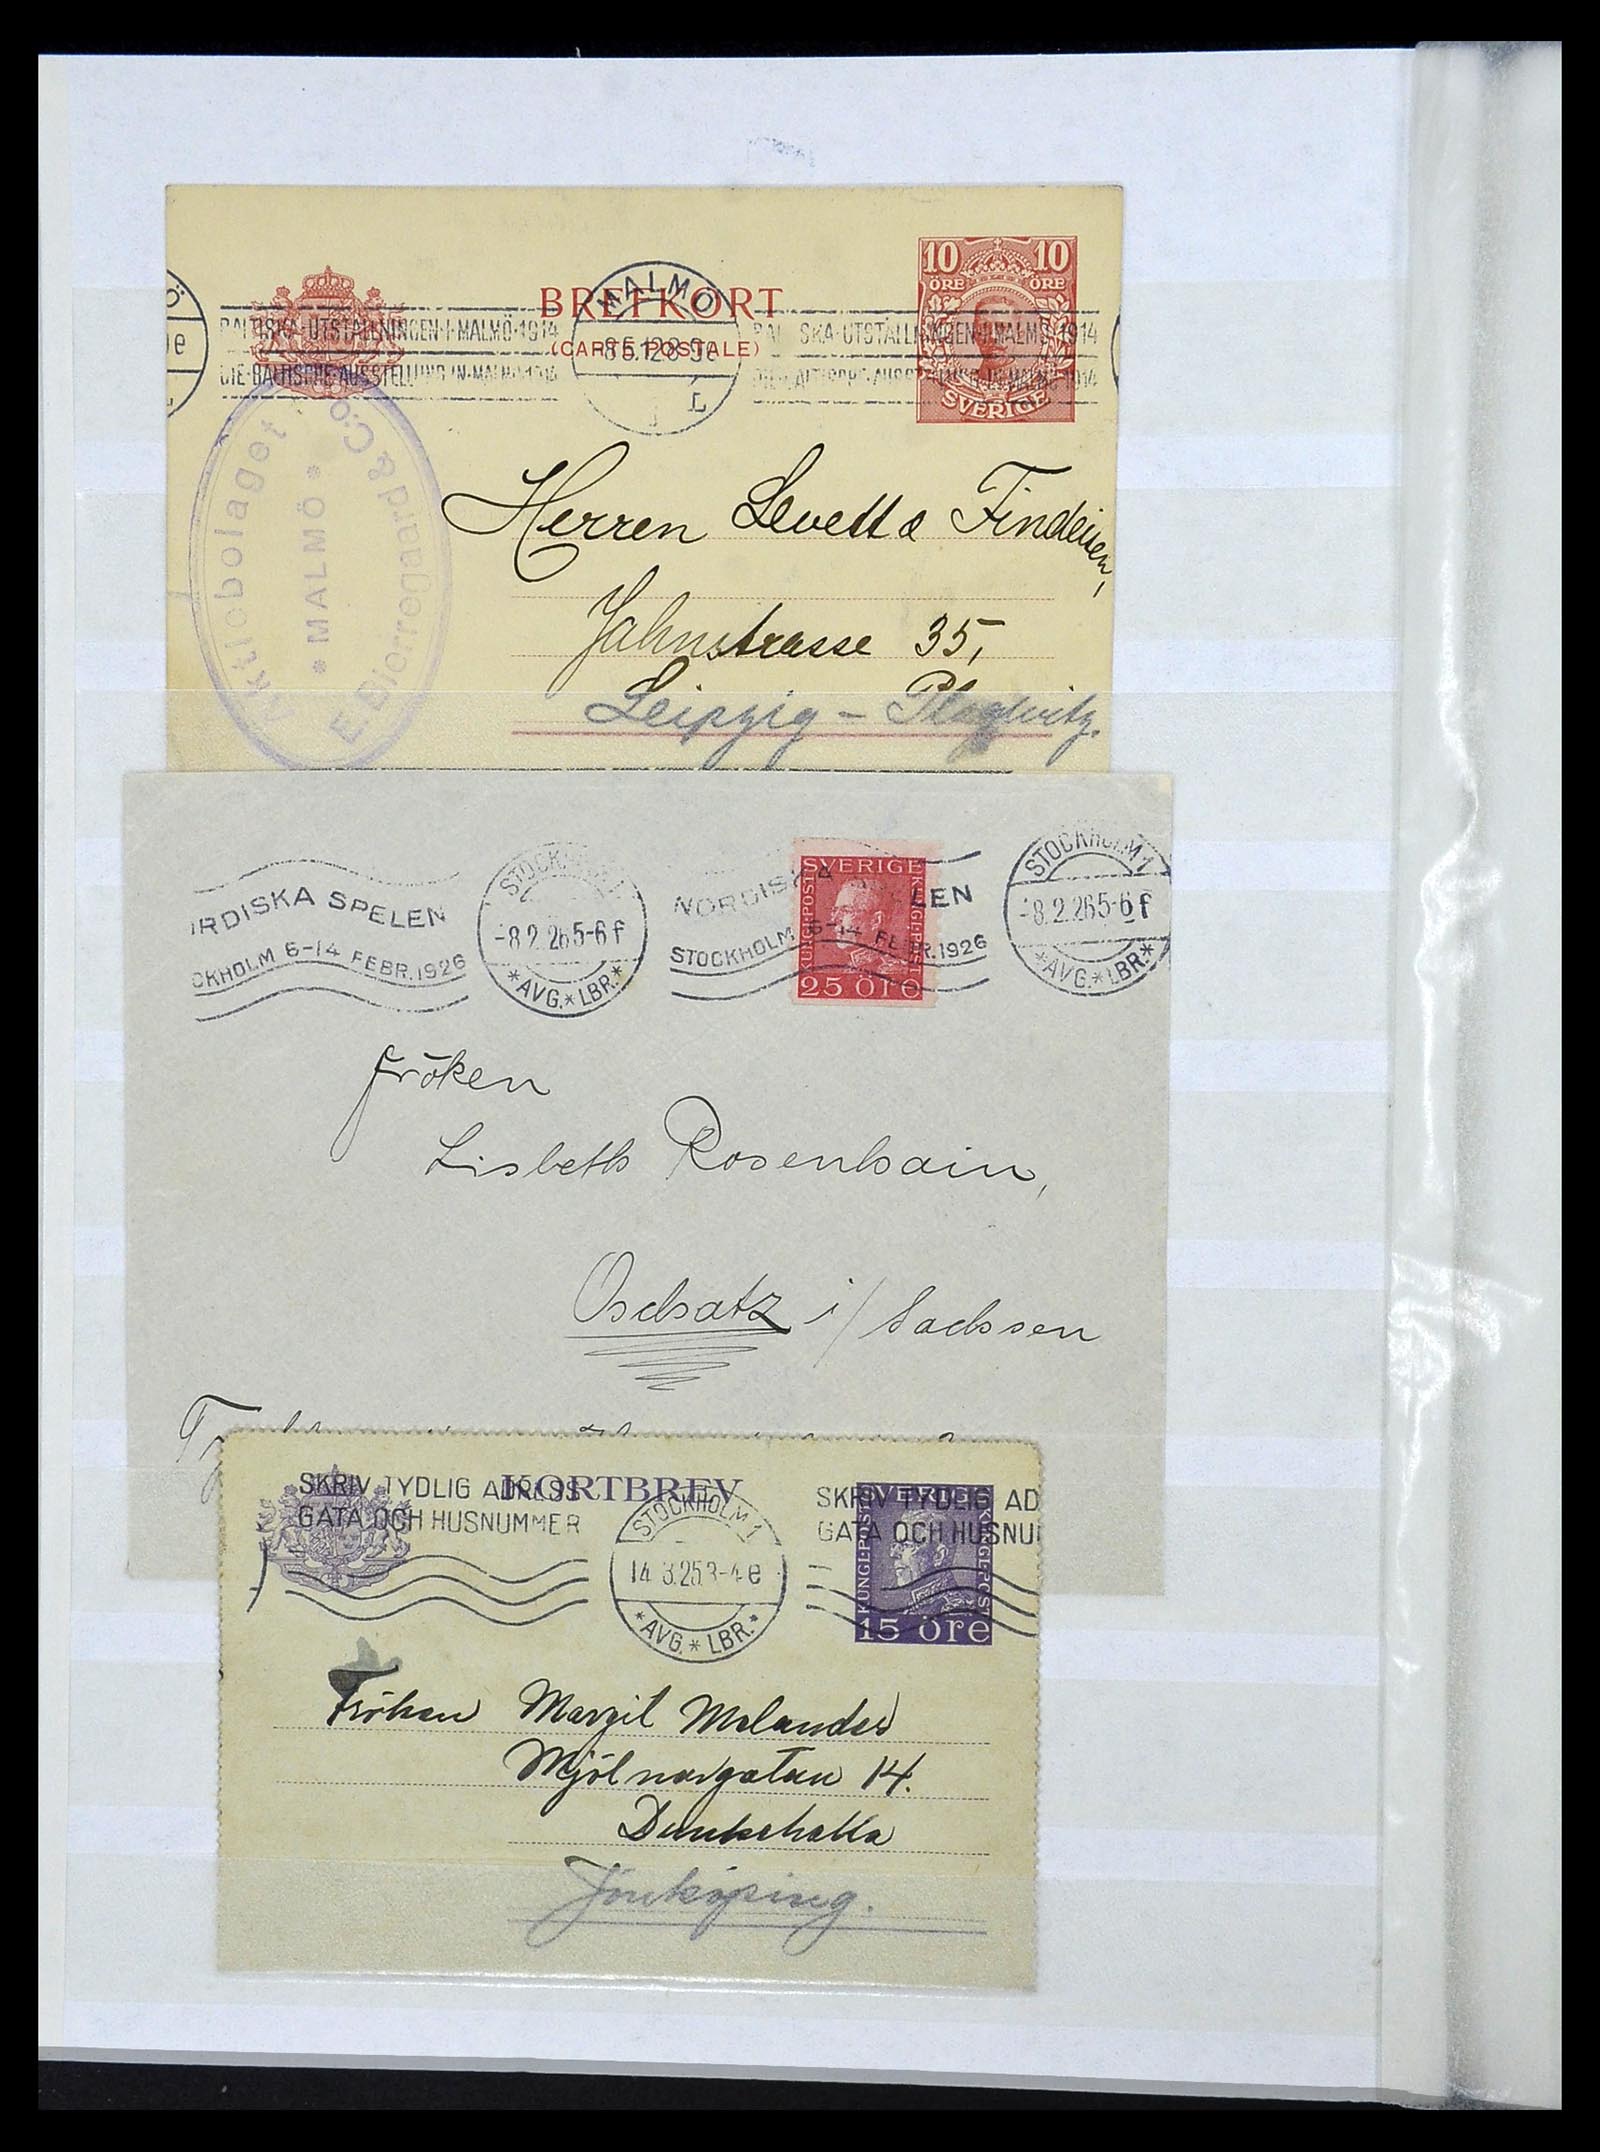 BREFKORT
(CARTE POSTALE)
10 10
ÖRE ÖRE
SVERIGE
MALMÖ
L
BALTISKA-UTSTÄLLNINGEN-I-MALMÖ-1914
DIE-BALTISCHE-AUSSTELLUNG-IN-MALMÖ-1914
BALTISKA-UTSTÄLLNINGEN-I-MALMÖ-1914
DIE-BALTISCHE-AUSSTELLUNG-IN-MALMÖ-1914
Aktiebolaget
E. Bjerregaard & Co.
* MALMÖ *
Herren Levett & Findeisen,
Jahnstrasse 35,
Leipzig – Plagwitz.
RDISKA SPELEN
CKHOLM 6-14 FEBR. 1926
STOCKHOLM 1
-8.2.26 5-6 f
*AVG.*LBR.*
NORDISKA SPELEN
STOCKHOLM 6-14 FEBR. 1926
SVERIGE
KUNGL·POST
KUNGL·POST
25 ÖRE
STOCKHOLM 1
-8.2.26 5-6 f
*AVG.*LBR.*
Fröken
Lisbeth Rosenhain,
Oschatz i/Sachsen
KORTBREV
SKRIV TYDLIG ADRESS
GATA OCH HUSNUMMER
STOCKHOLM 1
14.3.25 3-4 e
*AVG.*LBR.*
SKRIV TYDLIG AD
GATA OCH HUSNU
SVERIGE
KUNGL·POST
KUNGL·POST
15 öre
Fröken Margit Melander
Mjölnargatan 14.
Dunkehalla
Jönköping.